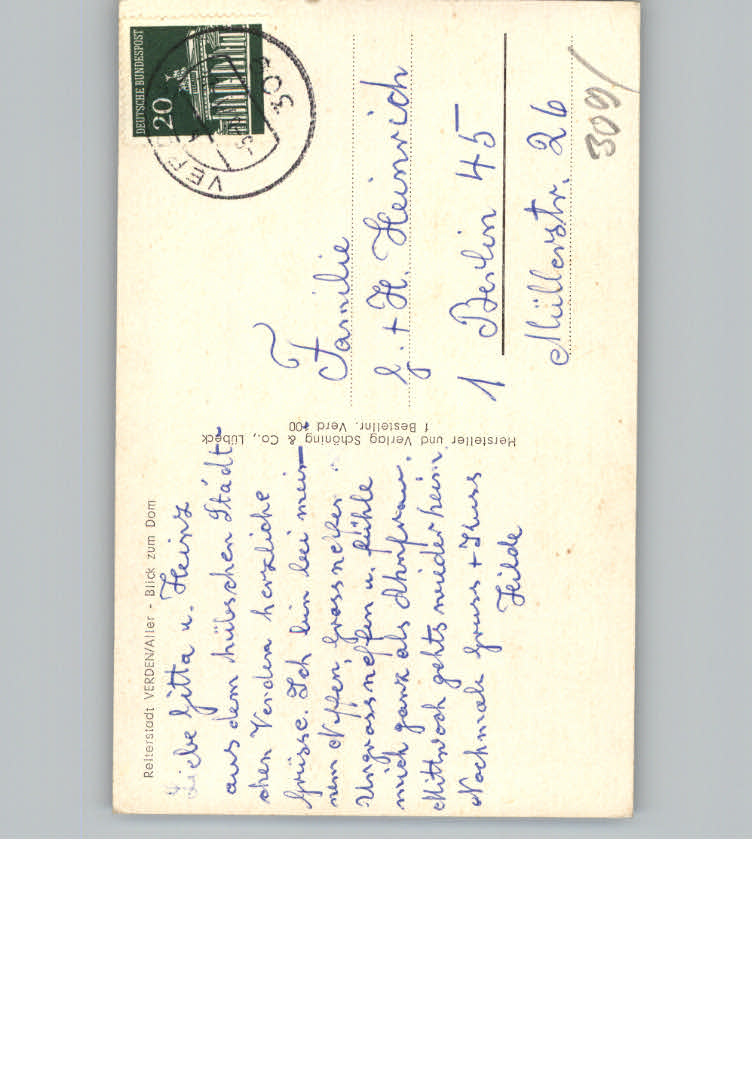 Reiterstadt VERDEN/Aller - Blick zum Dom
Liebe Gitta u. Heinz
aus dem hübschen Städt-
chen Verden herzliche
Grüsse. Ich bin bei mei-
nem Neffen, Grossneffen
Urgrossneffen u. fühle
mich ganz als Ahnfrau.
Mittwoch gehts wieder heim.
Nochmals Gruss + Kuss
Hilde
Hersteller und Verlag Schöning & Co., Lübeck
Bestellnr. Verd
DEUTSCHE BUNDESPOST
20
309
Familie
G. + H. Heinrich
1 Berlin 45
Müllerstr. 26
309/